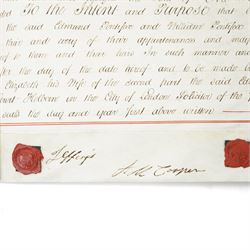 To the Intent and Purpose that
the said Edmund Pontifex and William Pontifex
them and every of them their appointments and may
of them and their heirs In such manner and
for the day of the date hereof and to be made
Elizabeth his Wife of the second part the said Ed
Holborn in the City of London Solicitor of the
said the day and year first above written
Jefferys
Cooper